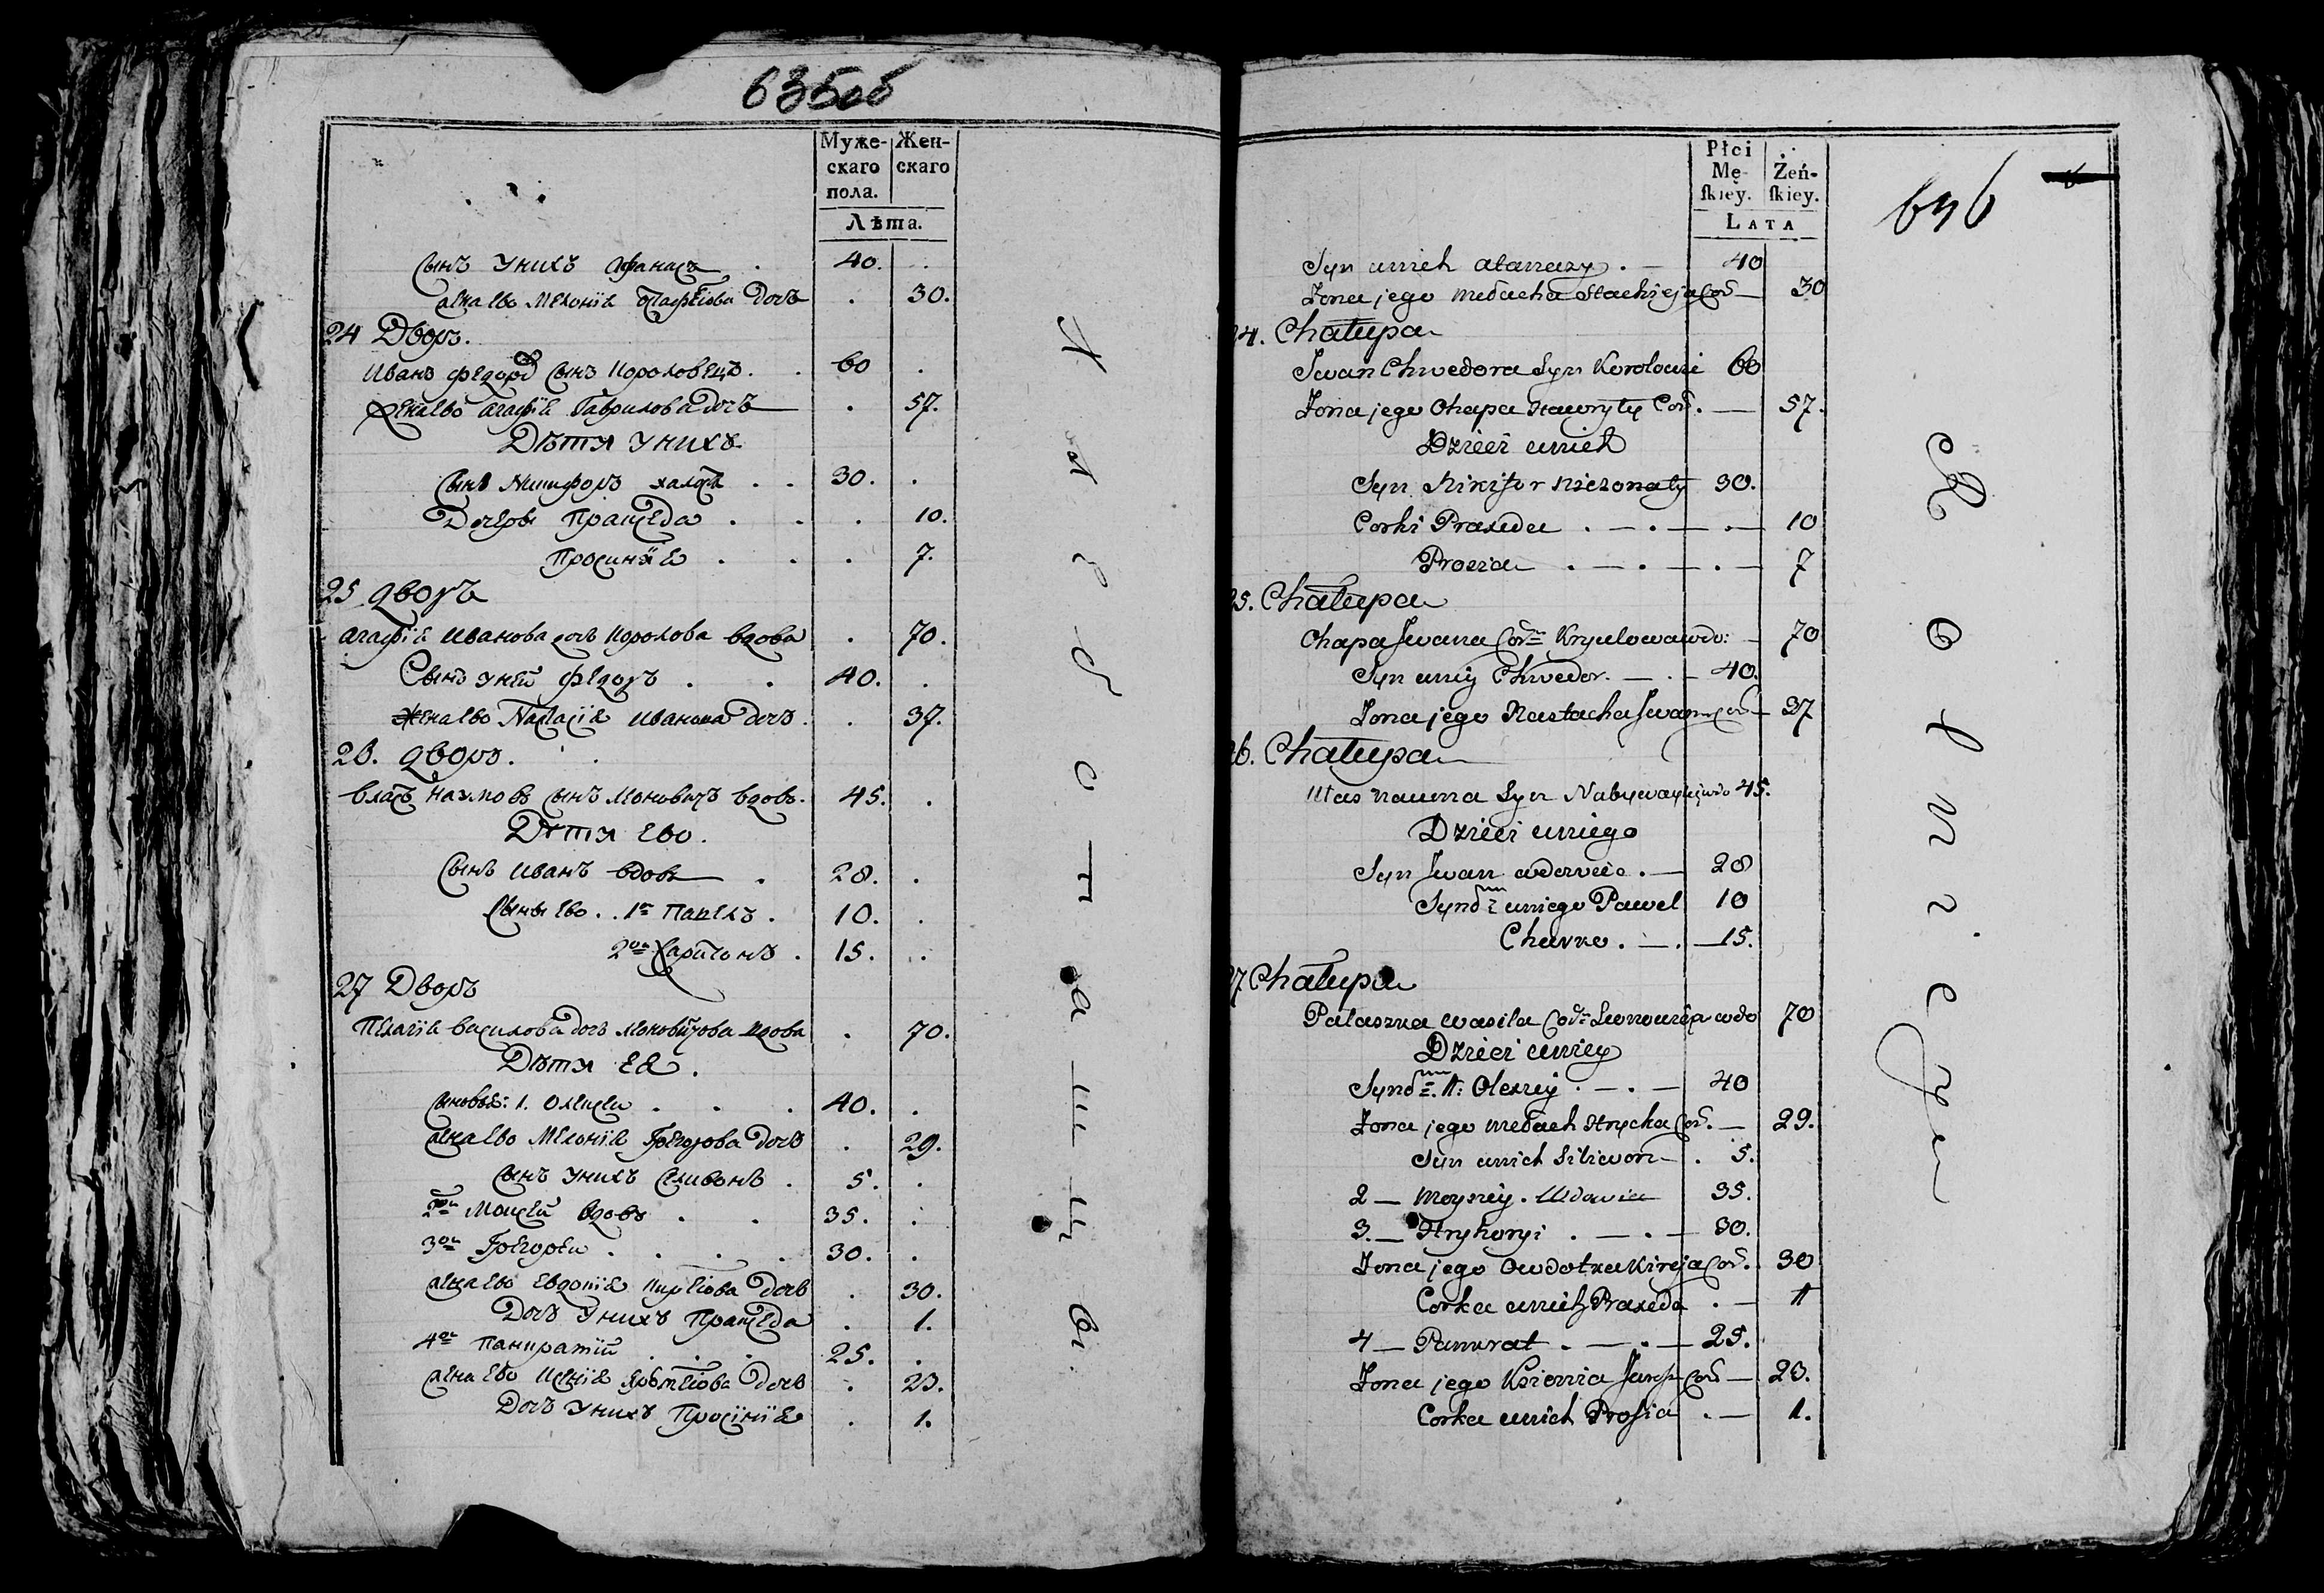 635об
Муже-
скаго
пола.
Жен-
скаго
Лѣта.
Сынъ Унихъ Афанасъ . 40. .
жена Ево Меланія Дочъ . 30.
24 Дворъ.
Иванъ Федоров Сынъ Короловецъ . . 60 .
Жена Ево Агафія Гаврилова дочъ . 57.
Дѣти Унихъ
Сынъ Никифоръ халостъ . . 30. .
Дочеры Праскеда . . . 10.
Просинія . . . 7.
25 дворъ
Агафія Иванова дочъ Королова вдова . 70.
Сынъ Уней Федоръ . . 40. .
Жена Ево Настасія Иванова дочъ . . 37.
26. дворъ.
власъ Наумовъ Сынъ Моновицъ вдовъ. 45. .
Дѣти Ево.
Сынъ Иванъ вдовъ . 28. .
Сыны Ево . . 1й Павелъ . 10. .
2ой Харитонъ . 15. .
27 Дворъ
Пелагія Василова дочъ вдова . 70.
Дѣти Еѣ .
Сыновья: 1. Олексей . . . 40. .
жена Ево Меланія Григорова Дочъ . 29.
Сынъ Унихъ Селивонъ . 5. .
2ой Мойсей вдовъ . . 35. .
3ой Григорей . . . . 30. .
жена Ево Евдокія Кирѣіова Дочъ . 30.
Дочъ Унихъ Праскеда . 1.
4ой Панкратій . . . 25. .
жена Ево Ксенія Дочъ . 23.
Дочъ Унихъ Просінія . 1.
Płci
Mę-
ſkiey.
Żeń-
ſkiey.
LATA
636
Syn unich Atanazy . — 40
Zona jego Medacha Stachieja Cor — 30
24. Chałupa
Jwan Chwedora Syn Korolowie 60
Zona jego Ohapa Hawryły Cor. — 57.
Dzieci unich
Syn Nikifor Niezonaty 30.
Corki Praxeda . — . — . — 10
Prosia . — . — . — 7
25. Chałupa
Ohapa Jwana Cor wdo: — 70
Syn uniy Chwedor. — . — 40.
Zona jego Nastacha Jwana Cor — 37
26. Chałupa
Ułas Nauma Syn wdo 45.
Dzieci uniego
Syn Jwan wdowiec . — 28
Synow 2 uniego Pawel 10
Charko . — . — 15.
27 Chałupa
Pałaszka Wasila Cor wdo 70
Dzieci uniey
Synow 4: Olexiey . — . — 40
Zona jego Medach Hrycka Cor. — 29.
Syn unich Siliwon — . 5.
2 — Moysiey . Wdowiec 35.
3. — Hryhoryi . — . — 30.
Zona jego Owdotka Kireja Cor. 30
Corka unich Praxeda . — 1
4 — Pankrat . — . — 25.
Zona jego Ksienia Cor — 23.
Corka unich Prosia . — 1.